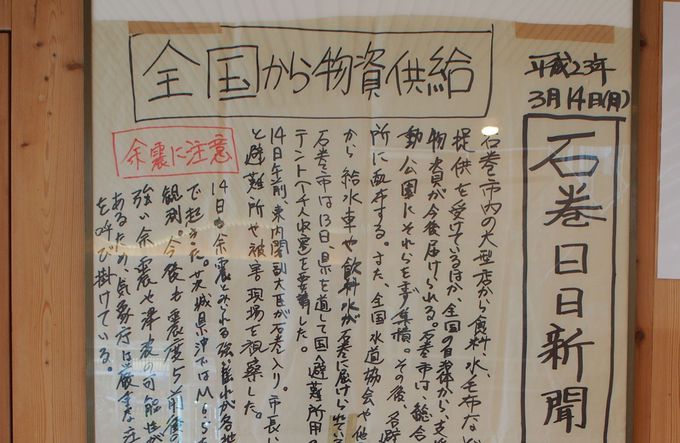 全国から物資供給
平成23年
3月14日(月)
石巻日日新聞
石巻市内の大型店から食料、水、毛布など
提供を受けているほか、全国の自治体から支援
物資が今後届けられる。石巻市は、総合
動公園にそれらをまず集積。その後、各避
所に配布する。また、全国水道協会や他
から給水車や飲料水が石巻に届けられてい
石巻市は13日、県を通して国へ避難所用
テント(千人収容)を要請した。
14日午前、東内閣副大臣が石巻入り。市長い
と避難所や被害現場を視察した。
余震に注意
14日も余震とみられる強い揺れが各地
で起きた。茨城県沖ではM6.5を
観測。今後も震度5前後の
強い余震や津波の可能性が
あるため、気象庁は厳重な注
を呼び掛けている。